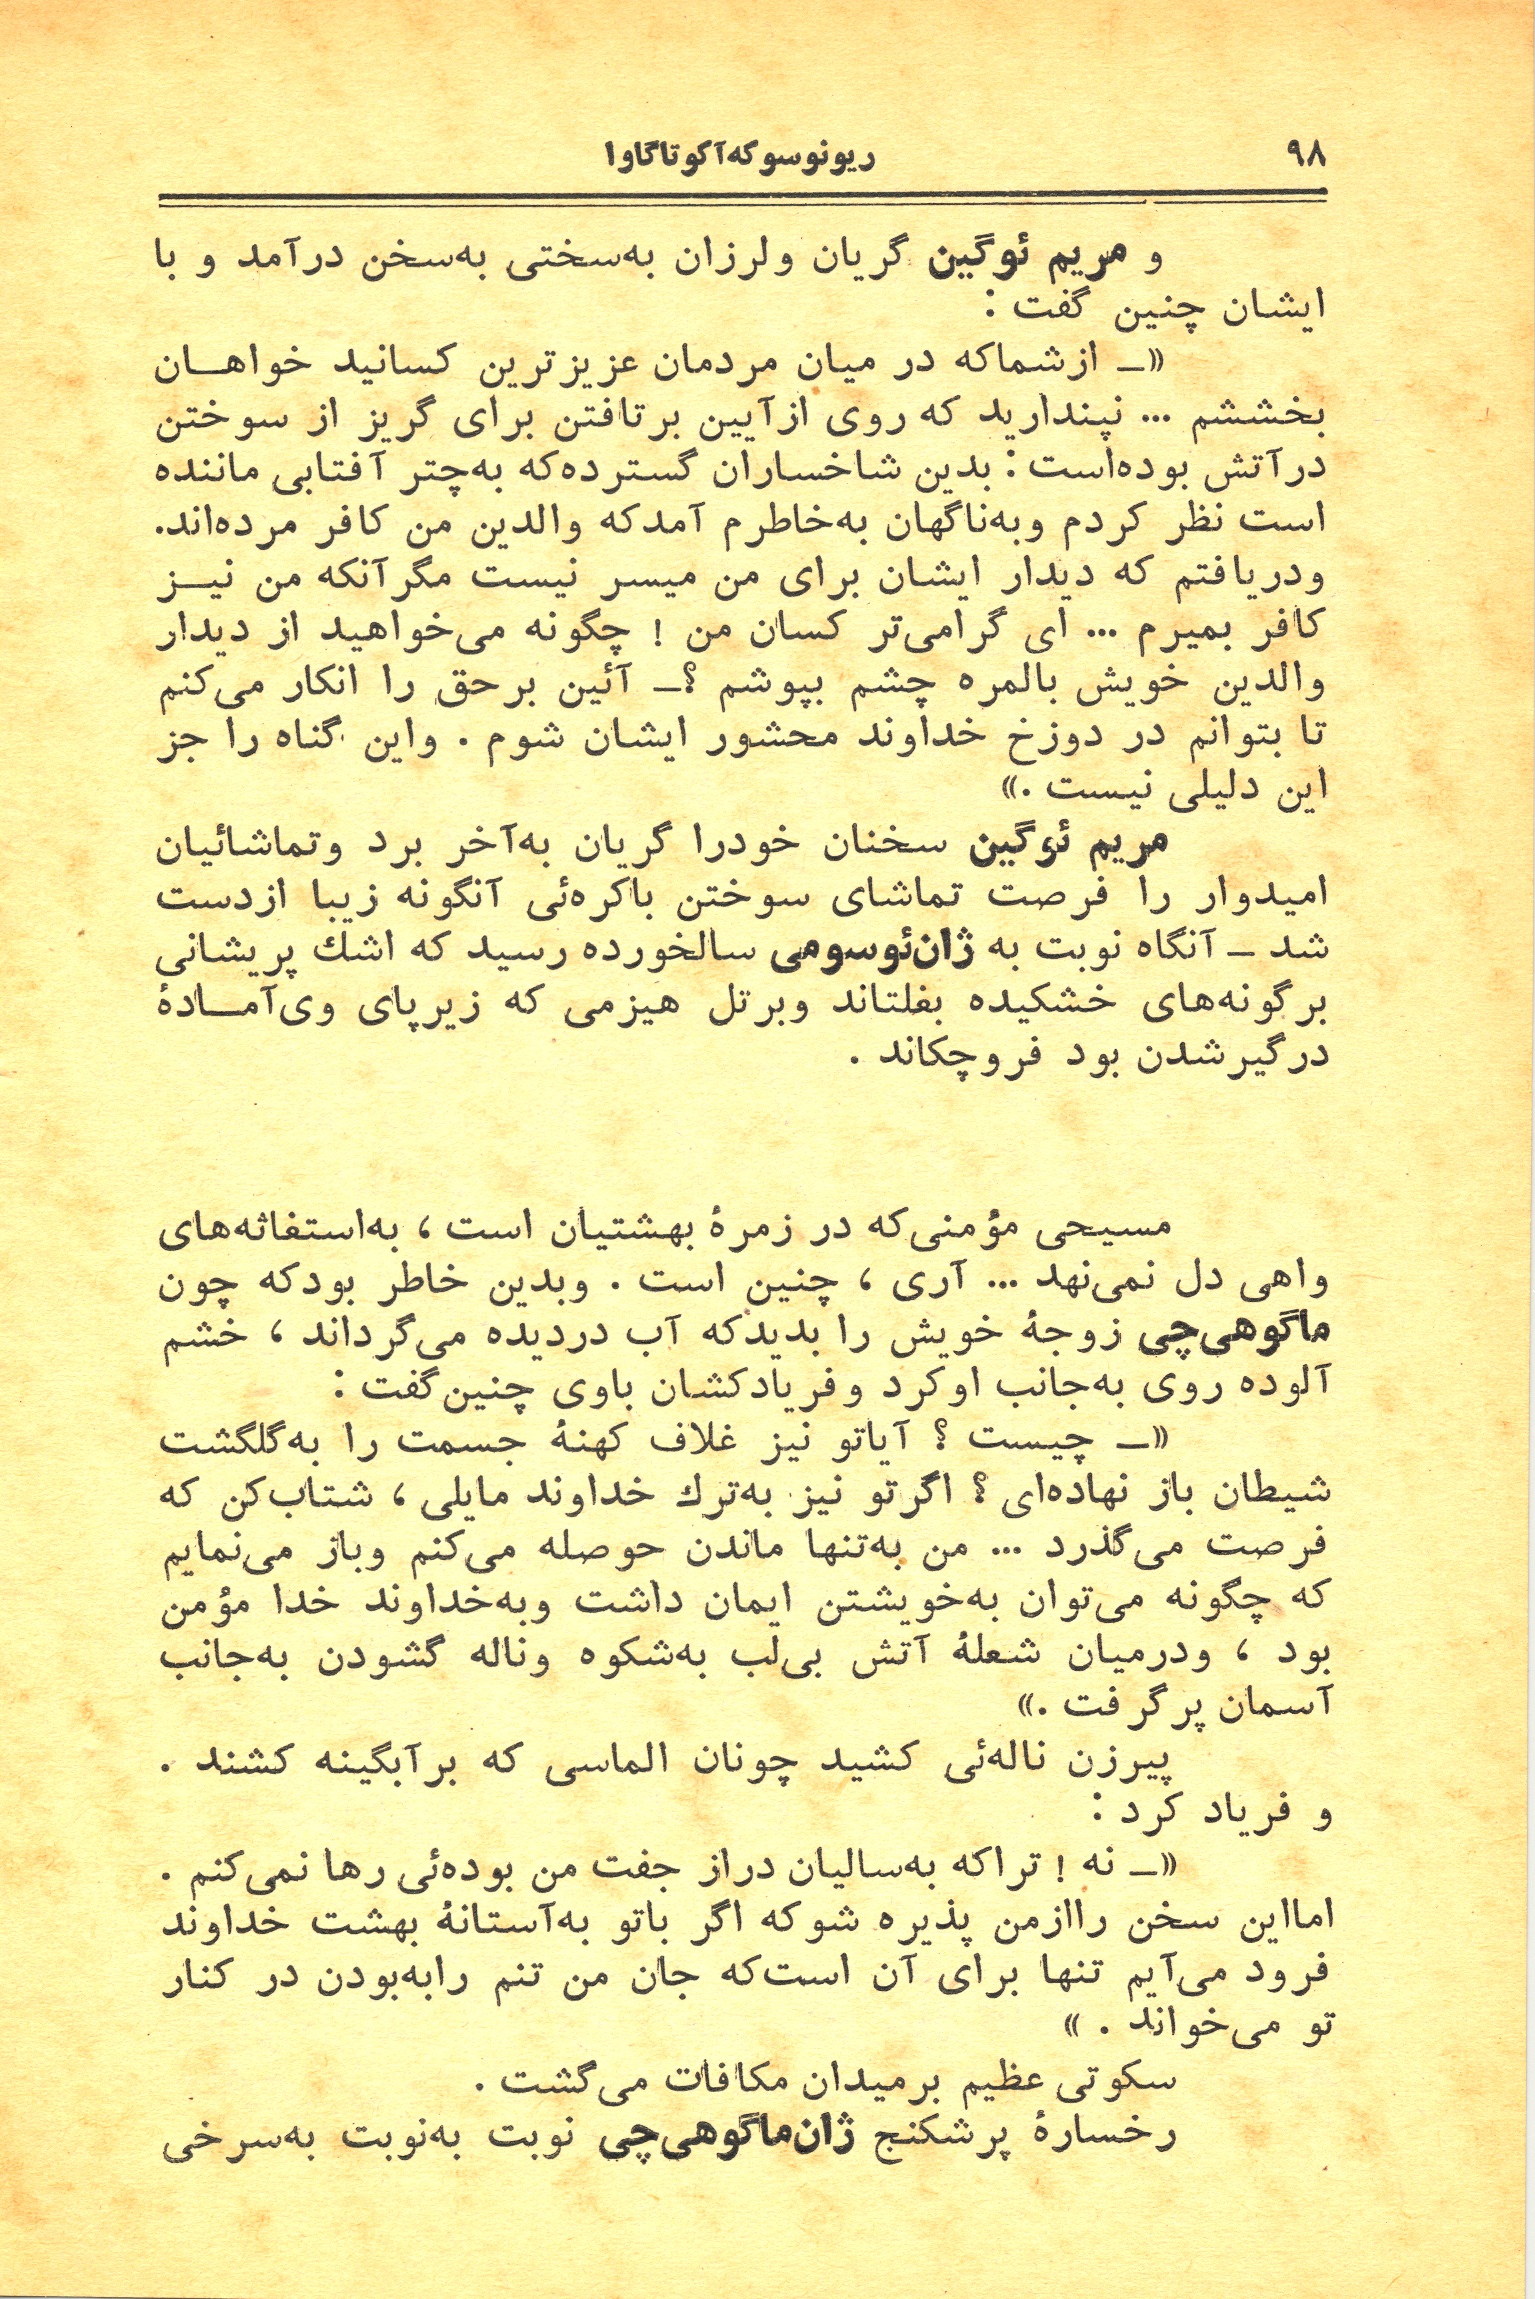 ۹۸
ریونوسوکه‌آکوتاگاوا
و مریم ئوگین گریان ولرزان به‌سختی به‌سخن درآمد و با
ایشان چنین گفت :
«ــ ازشماکه در میان مردمان عزیزترین کسانید خواهــان
بخششم ... نپندارید که روی ازآیین برتافتن برای گریز از سوختن
درآتش بوده‌است : بدین شاخساران گسترده‌که به‌چتر آفتابی ماننده
است نظر کردم وبه‌ناگهان به‌خاطرم آمدکه والدین من کافر مرده‌اند.
ودریافتم که دیدار ایشان برای من میسر نیست مگرآنکه من نیــز
کافر بمیرم ... ای گرامی‌تر کسان من ! چگونه می‌خواهید از دیدار
والدین خویش بالمره چشم بپوشم ؟ــ آئین برحق را انکار می‌کنم
تا بتوانم در دوزخ خداوند محشور ایشان شوم . واین گناه را جز
این دلیلی نیست .»
مریم ئوگین سخنان خودرا گریان به‌آخر برد وتماشائیان
امیدوار را فرصت تماشای سوختن باکره‌ئی آنگونه زیبا ازدست
شد ــ آنگاه نوبت به ژان‌ئوسومی سالخورده رسید که اشك پریشانی
برگونه‌های خشکیده بغلتاند وبرتل هیزمی که زیرپای وی‌آمــادهٔ
درگیرشدن بود فروچکاند .
مسیحی مؤمنی‌که در زمرهٔ بهشتیان است ، به‌استغاثه‌های
واهی دل نمی‌نهد ... آری ، چنین است . وبدین خاطر بودکه چون
ماگوهی‌چی زوجهٔ خویش را بدیدکه آب دردیده می‌گرداند ، خشم
آلوده روی به‌جانب اوکرد وفریادکشان باوی چنین‌گفت :
«ــ چیست ؟ آیاتو نیز غلاف کهنهٔ جسمت را به‌گلگشت
شیطان باز نهاده‌ای ؟ اگرتو نیز به‌ترك خداوند مایلی ، شتاب‌کن که
فرصت می‌گذرد ... من به‌تنها ماندن حوصله می‌کنم وباز می‌نمایم
که چگونه می‌توان به‌خویشتن ایمان داشت وبه‌خداوند خدا مؤمن
بود ، ودرمیان شعلهٔ آتش بی‌لب به‌شکوه وناله گشودن به‌جانب
آسمان پرگرفت .»
پیرزن ناله‌ئی کشید چونان الماسی که برآبگینه کشند .
و فریاد کرد :
«ــ نه ! تراکه به‌سالیان دراز جفت من بوده‌ئی رها نمی‌کنم .
امااین سخن راازمن پذیره شوکه اگر باتو به‌آستانهٔ بهشت خداوند
فرود می‌آیم تنها برای آن است‌که جان من تنم رابه‌بودن در کنار
تو می‌خواند . »
سکوتی عظیم برمیدان مکافات می‌گشت .
رخسارهٔ پرشکنج ژان‌ماگوهی‌چی نوبت به‌نوبت به‌سرخی